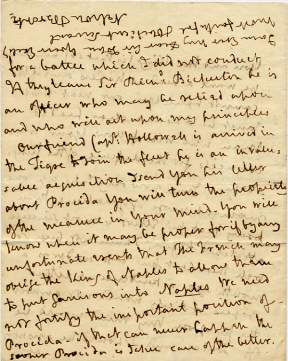 for a battle which I did not conduct
Sir Richd Bickerton he is
an officer who may be relied upon
and who will act upon my principles
Our friend Capt Hallowell is arrived in
the Tigre to join the fleet he is an invalu
able acquisition I send you his letter
about Procida You will turn the propriety
of the measure in your mind. You will
know when it may be proper for if by any
unfortunate event that the French may
oblige the King of Naples to allow them
to put Garrisons into Naples We need
not fortify the important position of
Procida. if that can never happen the
Procida is taken care of the better.
ever My Dear Sir John Yours Most
faithful Obedient Servant
Nelson & Bronte